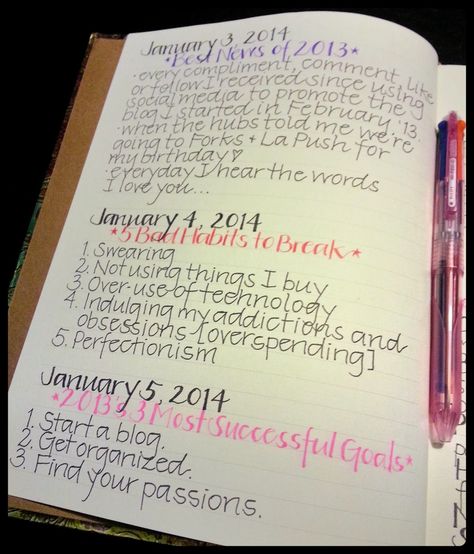 January 3, 2014
*Best News of 2013*
· every compliment, comment, like
or follow I received since using
social media to promote the
blog I started in February, '13
· when the hubs told me we're
going to Forks + La Push for
my birthday ♡
· everyday I hear the words
I love you...
January 4, 2014
*5 Bad Habits to Break*
1. Swearing
2. Not using things I buy
3. Over-use of technology
4. Indulging my addictions and
obsessions [overspending]
5. Perfectionism
January 5, 2014
*2013's 3 Most Successful Goals*
1. Start a blog.
2. Get organized.
3. Find your passions.